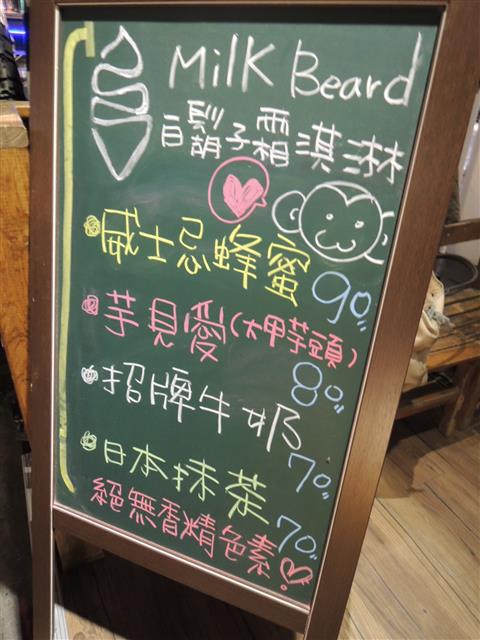 Milk Beard
白鬍子霜淇淋
威士忌蜂蜜
90
芋見愛(大甲芋頭)
80
招牌牛奶
70
日本抹茶
70
絕無香精色素!